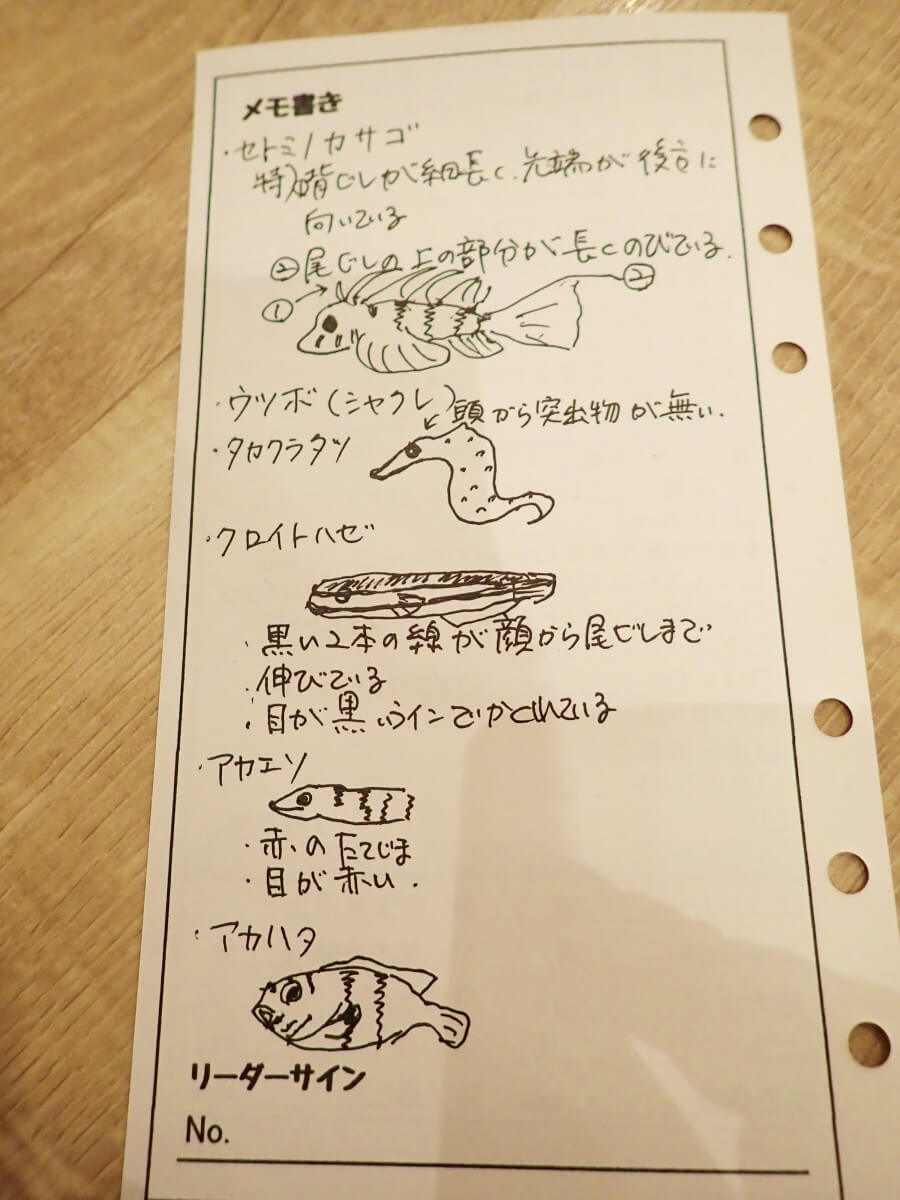 メモ書き
・セトミノカサゴ
特)①背びれが細長く、先端が後方に
向いている
②尾びれの上の部分が長くのびている.
① ②
・ウツボ(シャクレ)
頭から突出物が無い.
・タカクラタツ
・クロイトハゼ
・黒い2本の線が顔から尾びれまで
・伸びている
・目が黒いラインでかくれている
・アカエソ
・赤いのたてじま
・目が赤い.
・アカハタ
リーダーサイン
No.